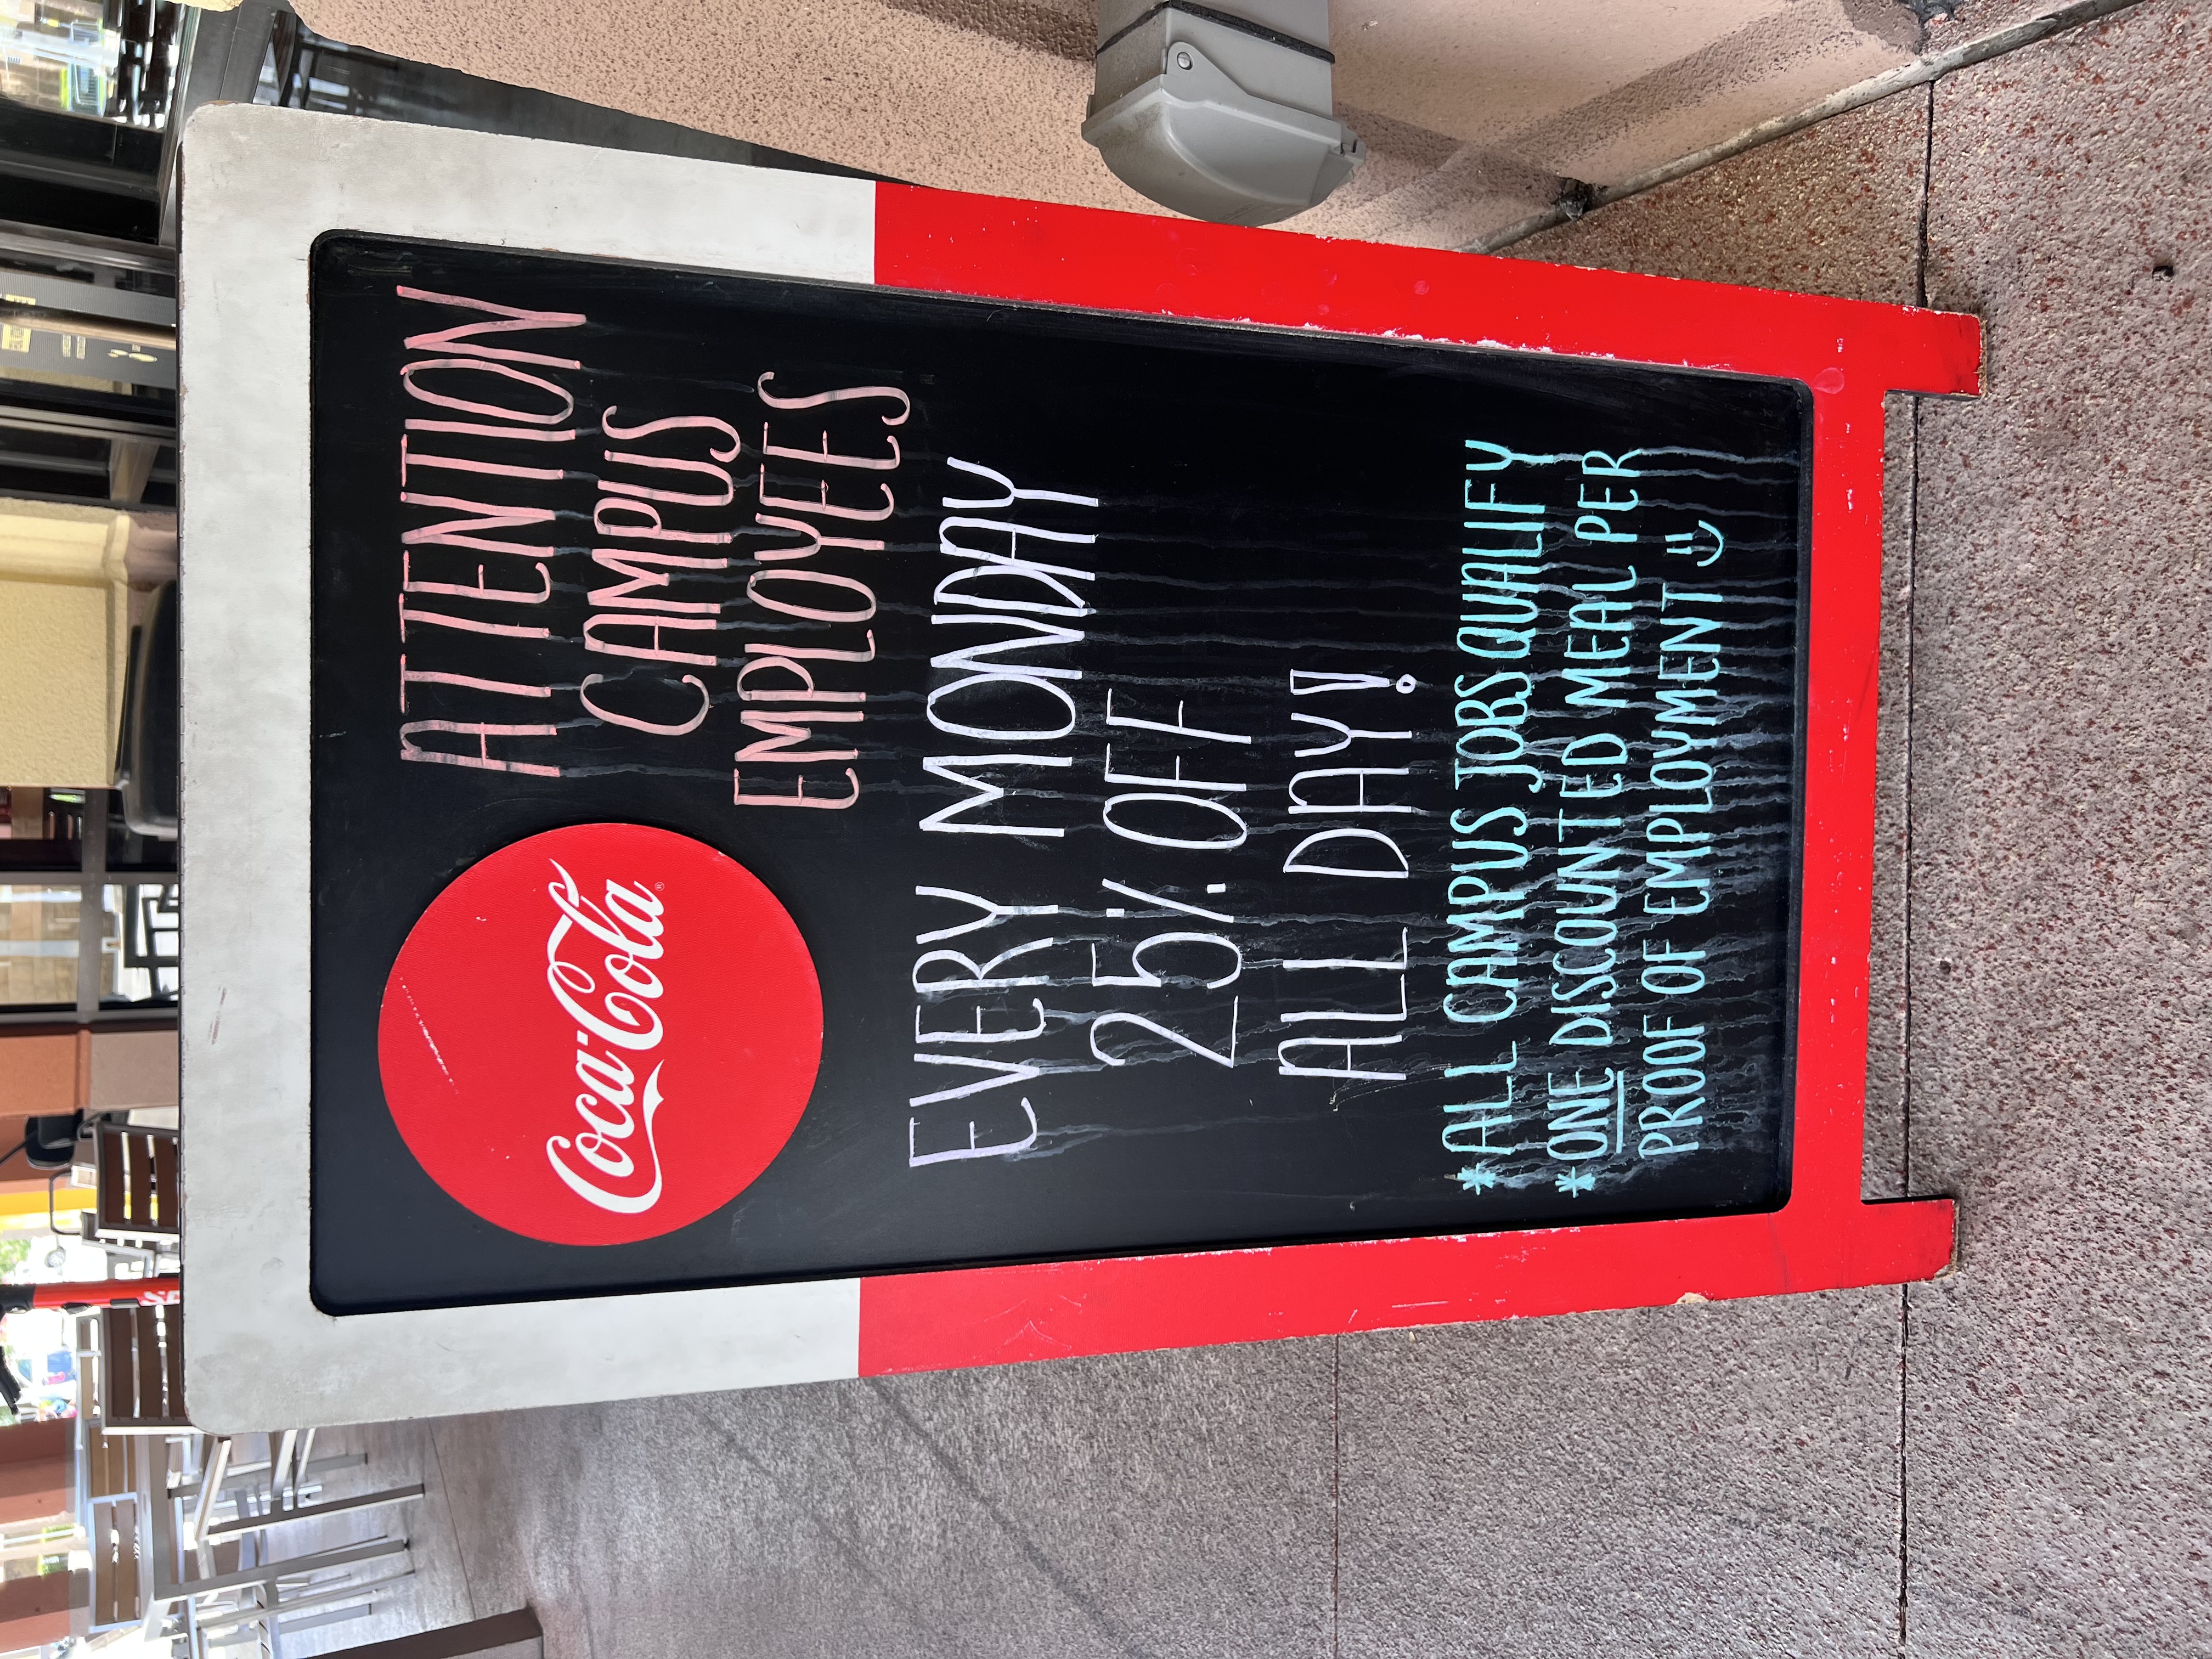 Coca-Cola
ATTENTION
CAMPUS
EMPLOYEES
EVERY MONDAY
25% OFF
ALL DAY!
*ALL CAMPUS JOBS QUALIFY
*ONE DISCOUNTED MEAL PER
PROOF OF EMPLOYMENT